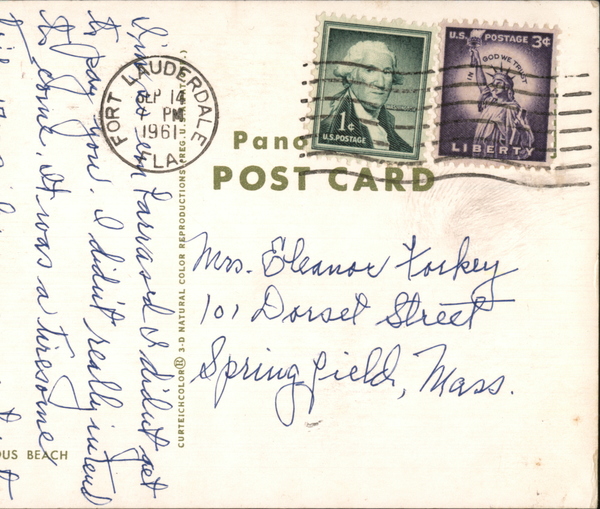 I'm so em barrased I didn't get
to pay you. I didn't really intend
to come. It was a tiresome
FORT LAUDERDALE
SEP 14
PM
1961
FLA.
1¢
U.S. POSTAGE
U.S. POSTAGE 3¢
IN GOD WE TRUST
LIBERTY
Pano
POST CARD
Mrs. Eleanor Forkey
101 Dorset Street
Springfield, Mass.
CURTEICHCOLOR® 3-D NATURAL COLOR REPRODUCTIONS (REG. U.S.
OUS BEACH